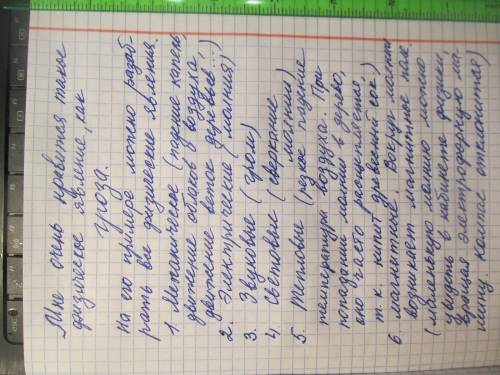 Мне очень нравится такое
физическое явление, как
гроза.
На его примере можно разоб-
рать все физические явления.
1. Механическое (падение капель,
движение облаков и воздуха,
движение веток деревьев...)
2. Электрические (молния)
3. Звуковые (гром)
4. Световые (сверкание
молнии)
5. Тепловые (резкое падение
температуры воздуха. При
попадании молнии в дерево,
оно часто расщепляется,
т. к. кипит древесный сок.)
6. магнитные. Вокруг молнии
возникает магнитное поле.
(маленькую молнию можно
увидеть в кабинете физики,
вращая электрофорную ма-
шину. компас отклонится)